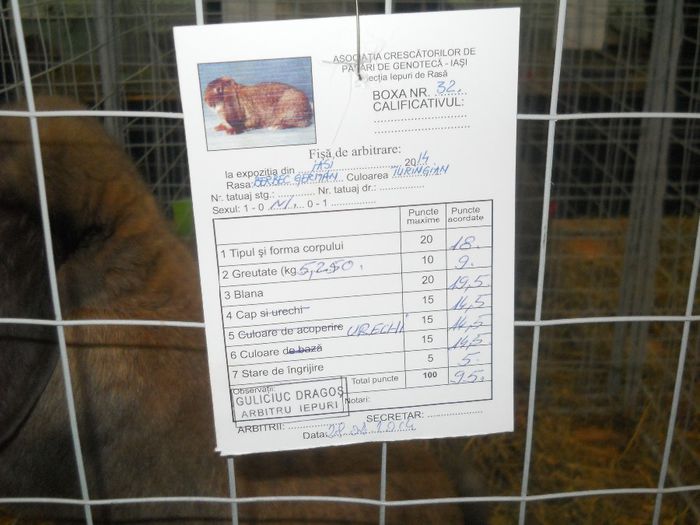 ASOCIAȚIA CRESCĂTORILOR DE
PĂSĂRI DE GENOTECĂ - IAȘI
Secția Iepuri de Rasă
BOXA NR. 32.
CALIFICATIVUL:
Fișă de arbitrare:
la expoziția din IASI 2014
Rasa: BERBEC GERMAN Culoarea TURINGIAN
Nr. tatuaj stg.: Nr. tatuaj dr.:
Sexul: 1 - 0 0 - 1
Puncte maxime Puncte acordate
1 Tipul și forma corpului 20 18.
2 Greutate (kg 5,250. 10 9.
3 Blana 20 19,5
4 Cap si urechi 15 14,5
5 Culoare de acoperire URECHI 15 14,5
6 Culoare de bază 15 14,5
7 Stare de îngrijire 5 5.
Total puncte 100 95.
Observații:
GULICIUC DRAGOȘ
ARBITRU IEPURI
Notari:
ARBITRII: SECRETAR:
Data: